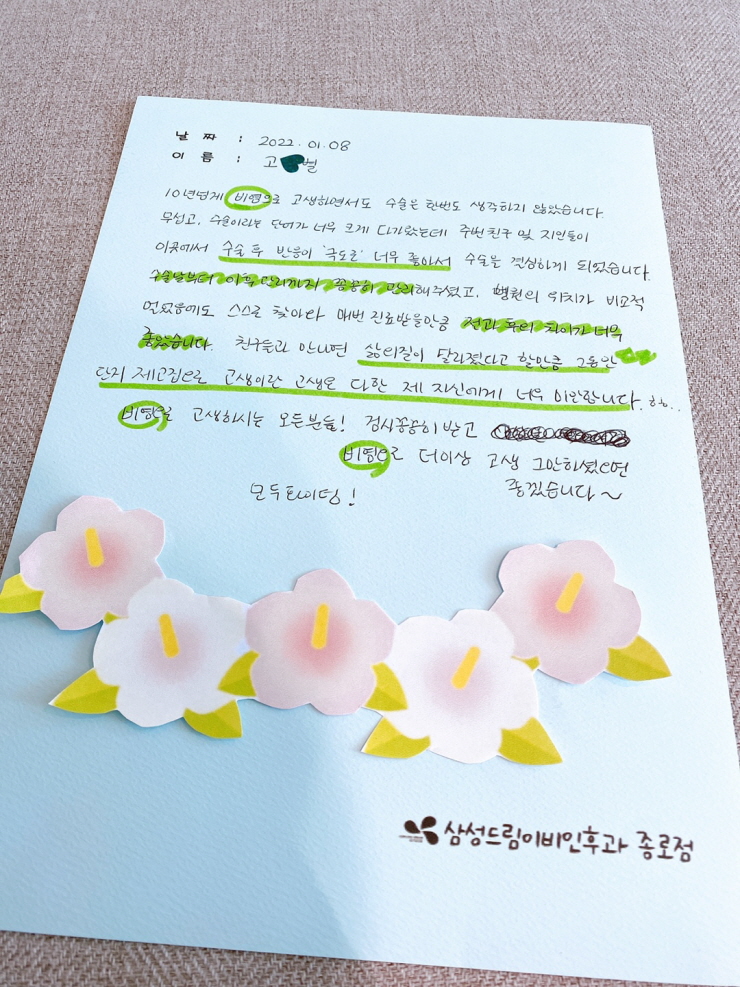 날 짜 : 2022. 01. 08
이 름 : 고 별
10년넘게 비염으로 고생하면서도 수술은 한번도 생각하지 않았습니다.
무섭고, 수술이라는 단어가 너무 크게 다가왔는데 주변친구 및 지인들이
이곳에서 수술 후 반응이 '극도로' 너무 좋아서 수술을 결심하게 되었습니다.
수술날부터 이후 관리까지 꼼꼼히 관리해주셨고, 병원의 위치가 비교적
멀었음에도 스스로 찾아와 매번 진료받을만큼 전과 후의 차이가 너무
좋았습니다. 친구들과 만나면 삶의질이 달라졌다고 할만큼 그동안
단지 제고집으로 고생이란 고생은 다한 제 자신에게 너무 미안합니다. ㅎㅎ..
비염으로 고생하시는 모든분들! 검사꼼꼼히 받고
비염으로 더이상 고생 그만하셨으면
좋겠습니다~
모두화이팅!
삼성드림이비인후과 종로점